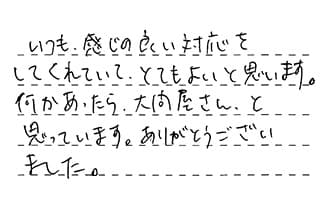 いつも、感じの良い対応を
してくれていて、とてもよいと思います。
何かあったら、大向屋さん、と
思っています。ありがとうござい
ました。